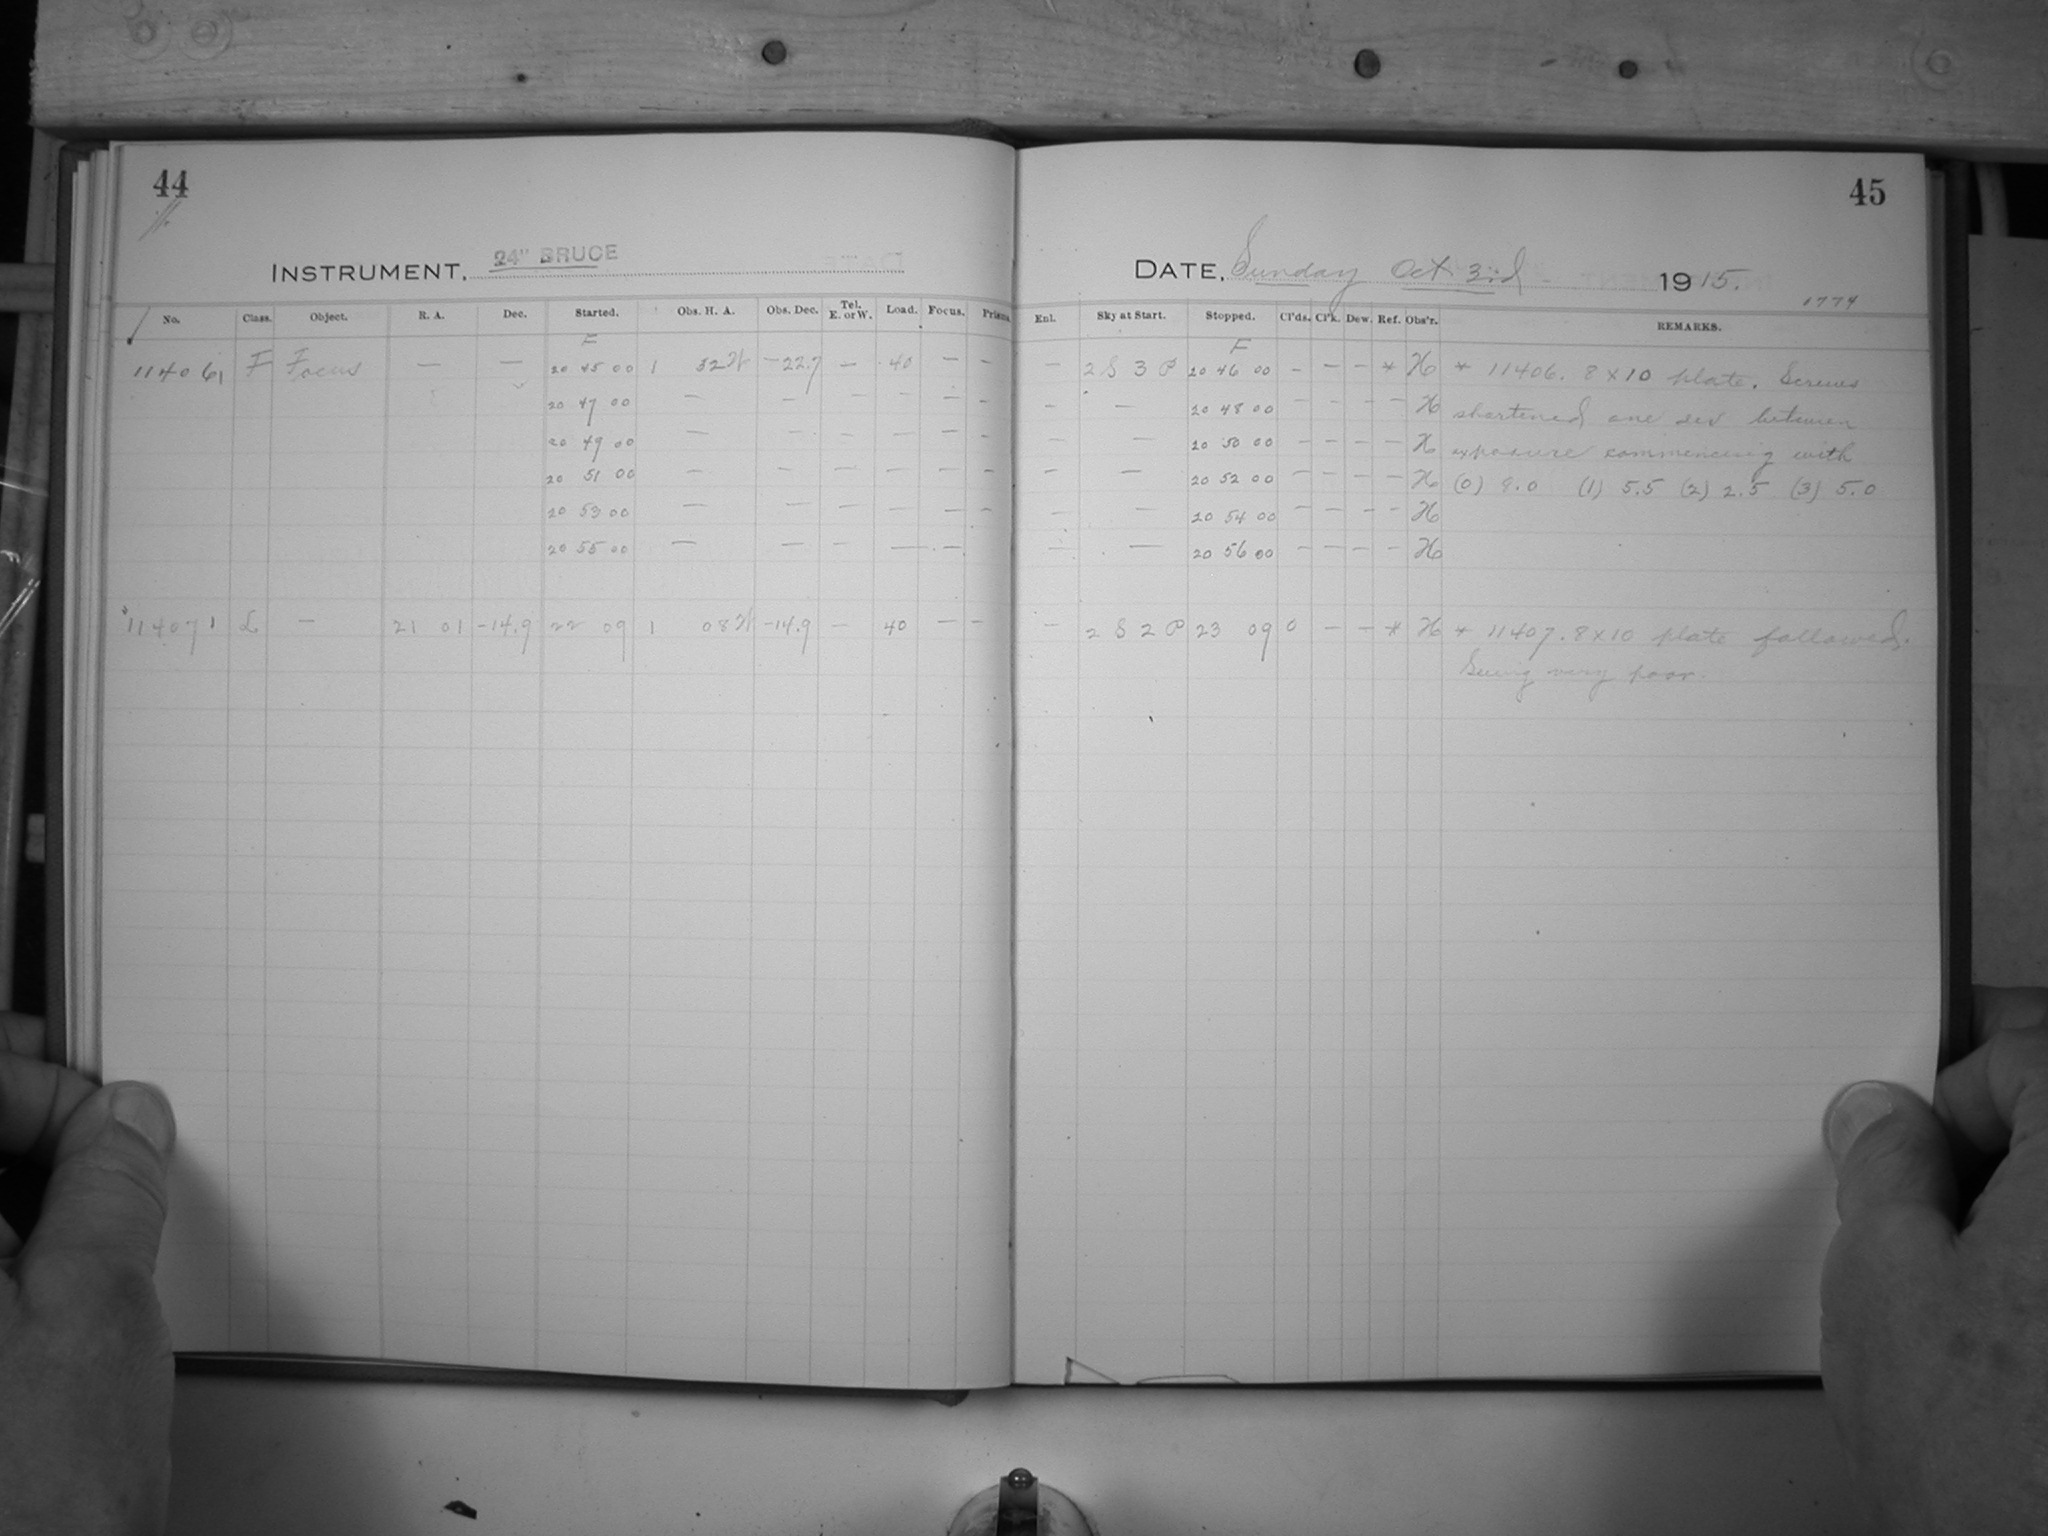 44
INSTRUMENT, 24" BRUCE
No. Class. Object. R. A. Dec. Started. Obs. H. A. Obs. Dec. Tel. E. or W. Load. Focus. Prism.
F
11406 1 F Focus — — 20 45 00 1 32 W -22.7 — 40 — —
20 47 00 — — — — — —
20 49 00 — — — — — —
20 51 00 — — — — — —
20 53 00 — — — — — —
20 55 00 — — — — —
11407 1 L — 21 01 -14.9 22 09 1 08 W -14.9 — 40 — —
45
DATE, Sunday Oct 3rd 1915.
1774
Enl. Sky at Start. Stopped. Cl'ds. Cl'k. Dew. Ref. Obs'r. REMARKS.
F
— 2 S 3 P 20 46 00 — — — * H * 11406. 8 x 10 plate. Screws
— — 20 48 00 — — — — H shortened one rev between
— — 20 50 00 — — — — H exposure commencing with
— — 20 52 00 — — — — H (0) (1) 5.5 (2) 2.5 (3) 5.0
— — 20 54 00 — — — — H
— — 20 56 00 — — — — H
— 2 S 2 P 23 09 0 — — * H * 11407. 8 x 10 plate followed.
Seeing very poor.